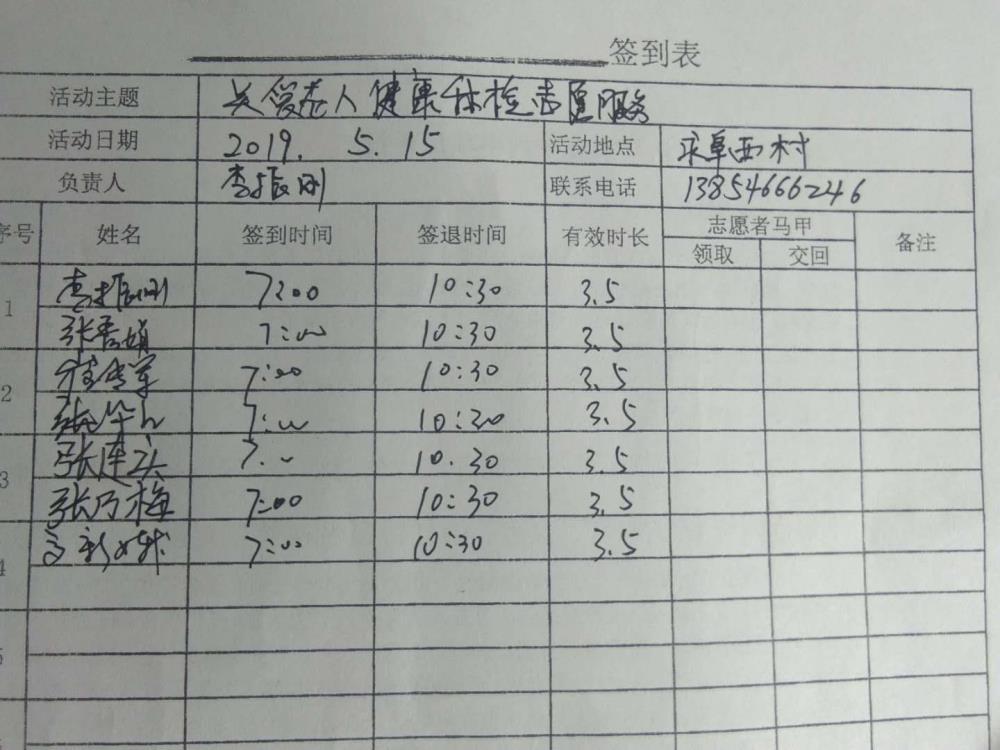 签到表
活动主题 关爱老人健康体检志愿服务
活动日期 2019. 5. 15 活动地点 西村
负责人 李振刚 联系电话 13854666246
序号 姓名 签到时间 签退时间 有效时长 志愿者马甲 备注
领取 交回
1 李振刚 7:00 10:30 3.5
张秀娟 7:00 10:30 3.5
2 7:00 10:30 3.5
张 7:00 10:30 3.5
3 张连 7:00 10.30 3.5
张乃梅 7:00 10:30 3.5
4 7:00 10:30 3.5
5